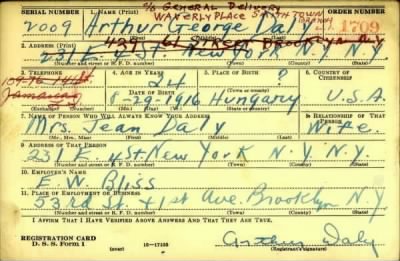 SERIAL NUMBER
C/O GENERAL DELIVERY
ORDER NUMBER
2009 Arthur George Daly
WAVERLY PLACE
11709
2. ADDRESS (Print)
437 61 STREET BROOKLYN NY
231 E. 4 St. New York N.Y. N.Y.
(Number and street or R. F. D. number) (Town) (County) (State)
3. TELEPHONE
4. AGE IN YEARS
5. PLACE OF BIRTH
6. COUNTRY OF CITIZENSHIP
24
?
Jamaica
DATE OF BIRTH
8-29-1916 Hungary U.S.A.
7. NAME OF PERSON WHO WILL ALWAYS KNOW YOUR ADDRESS
8. RELATIONSHIP OF THAT PERSON
Mrs. Jean Daly Wife
(Mr., Mrs., Miss) (First) (Middle) (Last)
9. ADDRESS OF THAT PERSON
231 E. 4 St New York N.Y. N.Y.
(Number and street or R. F. D. number) (Town) (County) (State)
10. EMPLOYER'S NAME
E. W. Bliss
11. PLACE OF EMPLOYMENT OR BUSINESS
53rd St. + 1st Ave. Brooklyn N.Y.
(Number and street or R. F. D. number) (Town) (County) (State)
I AFFIRM THAT I HAVE VERIFIED ABOVE ANSWERS AND THAT THEY ARE TRUE.
REGISTRATION CARD
D. S. S. Form 1 (over) 16—17105
Arthur Daly